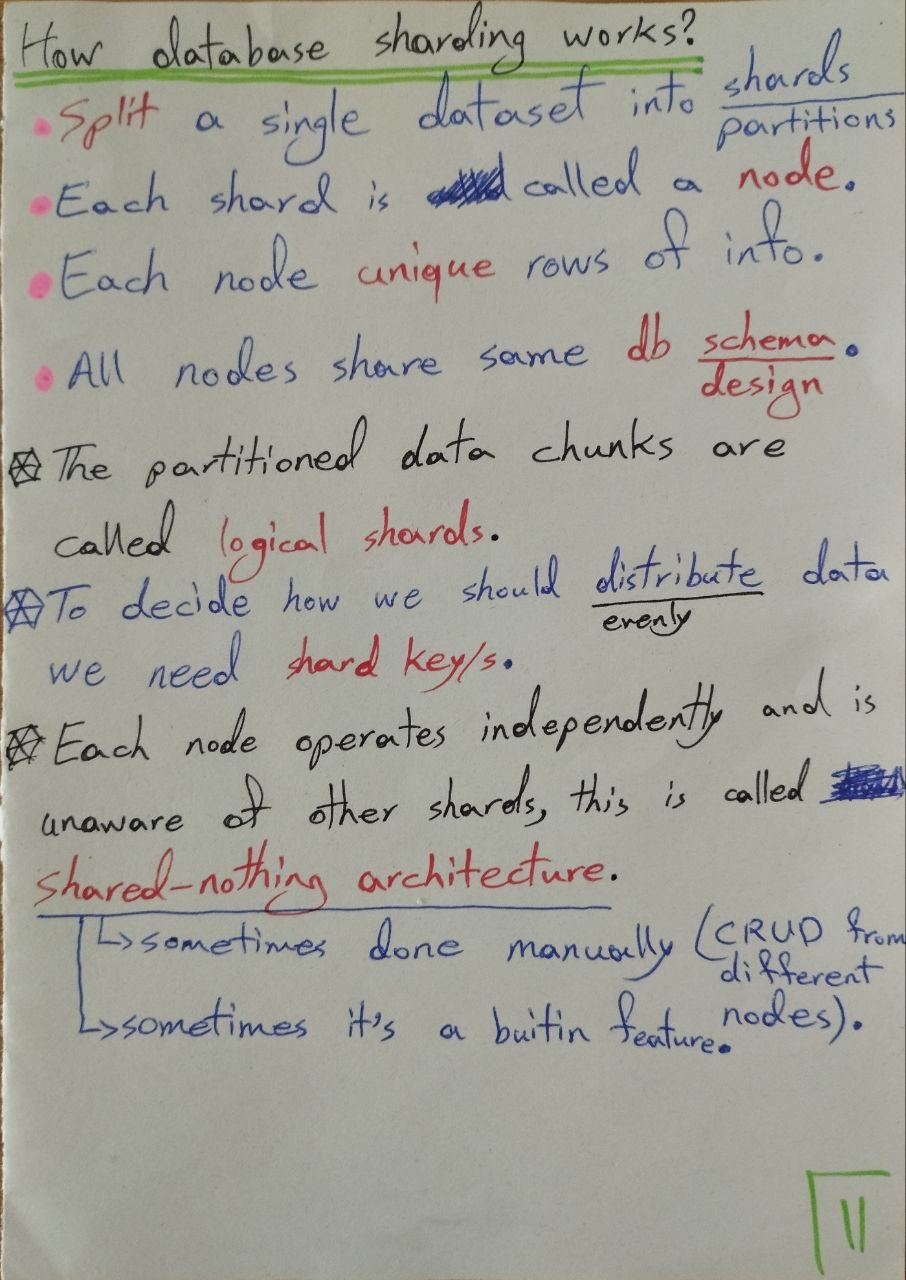 How database sharding works?
• Split a single dataset into shards
partitions
• Each shard is called a node.
• Each node unique rows of info.
• All nodes share same db schema.
design
The partitioned data chunks are
called logical shards.
To decide how we should distribute data
evenly
we need shard key/s.
Each node operates independently and is
unaware of other shards, this is called
shared-nothing architecture.
↳ sometimes done manually (CRUD from
different
nodes).
↳ sometimes it's a buitin feature.
11